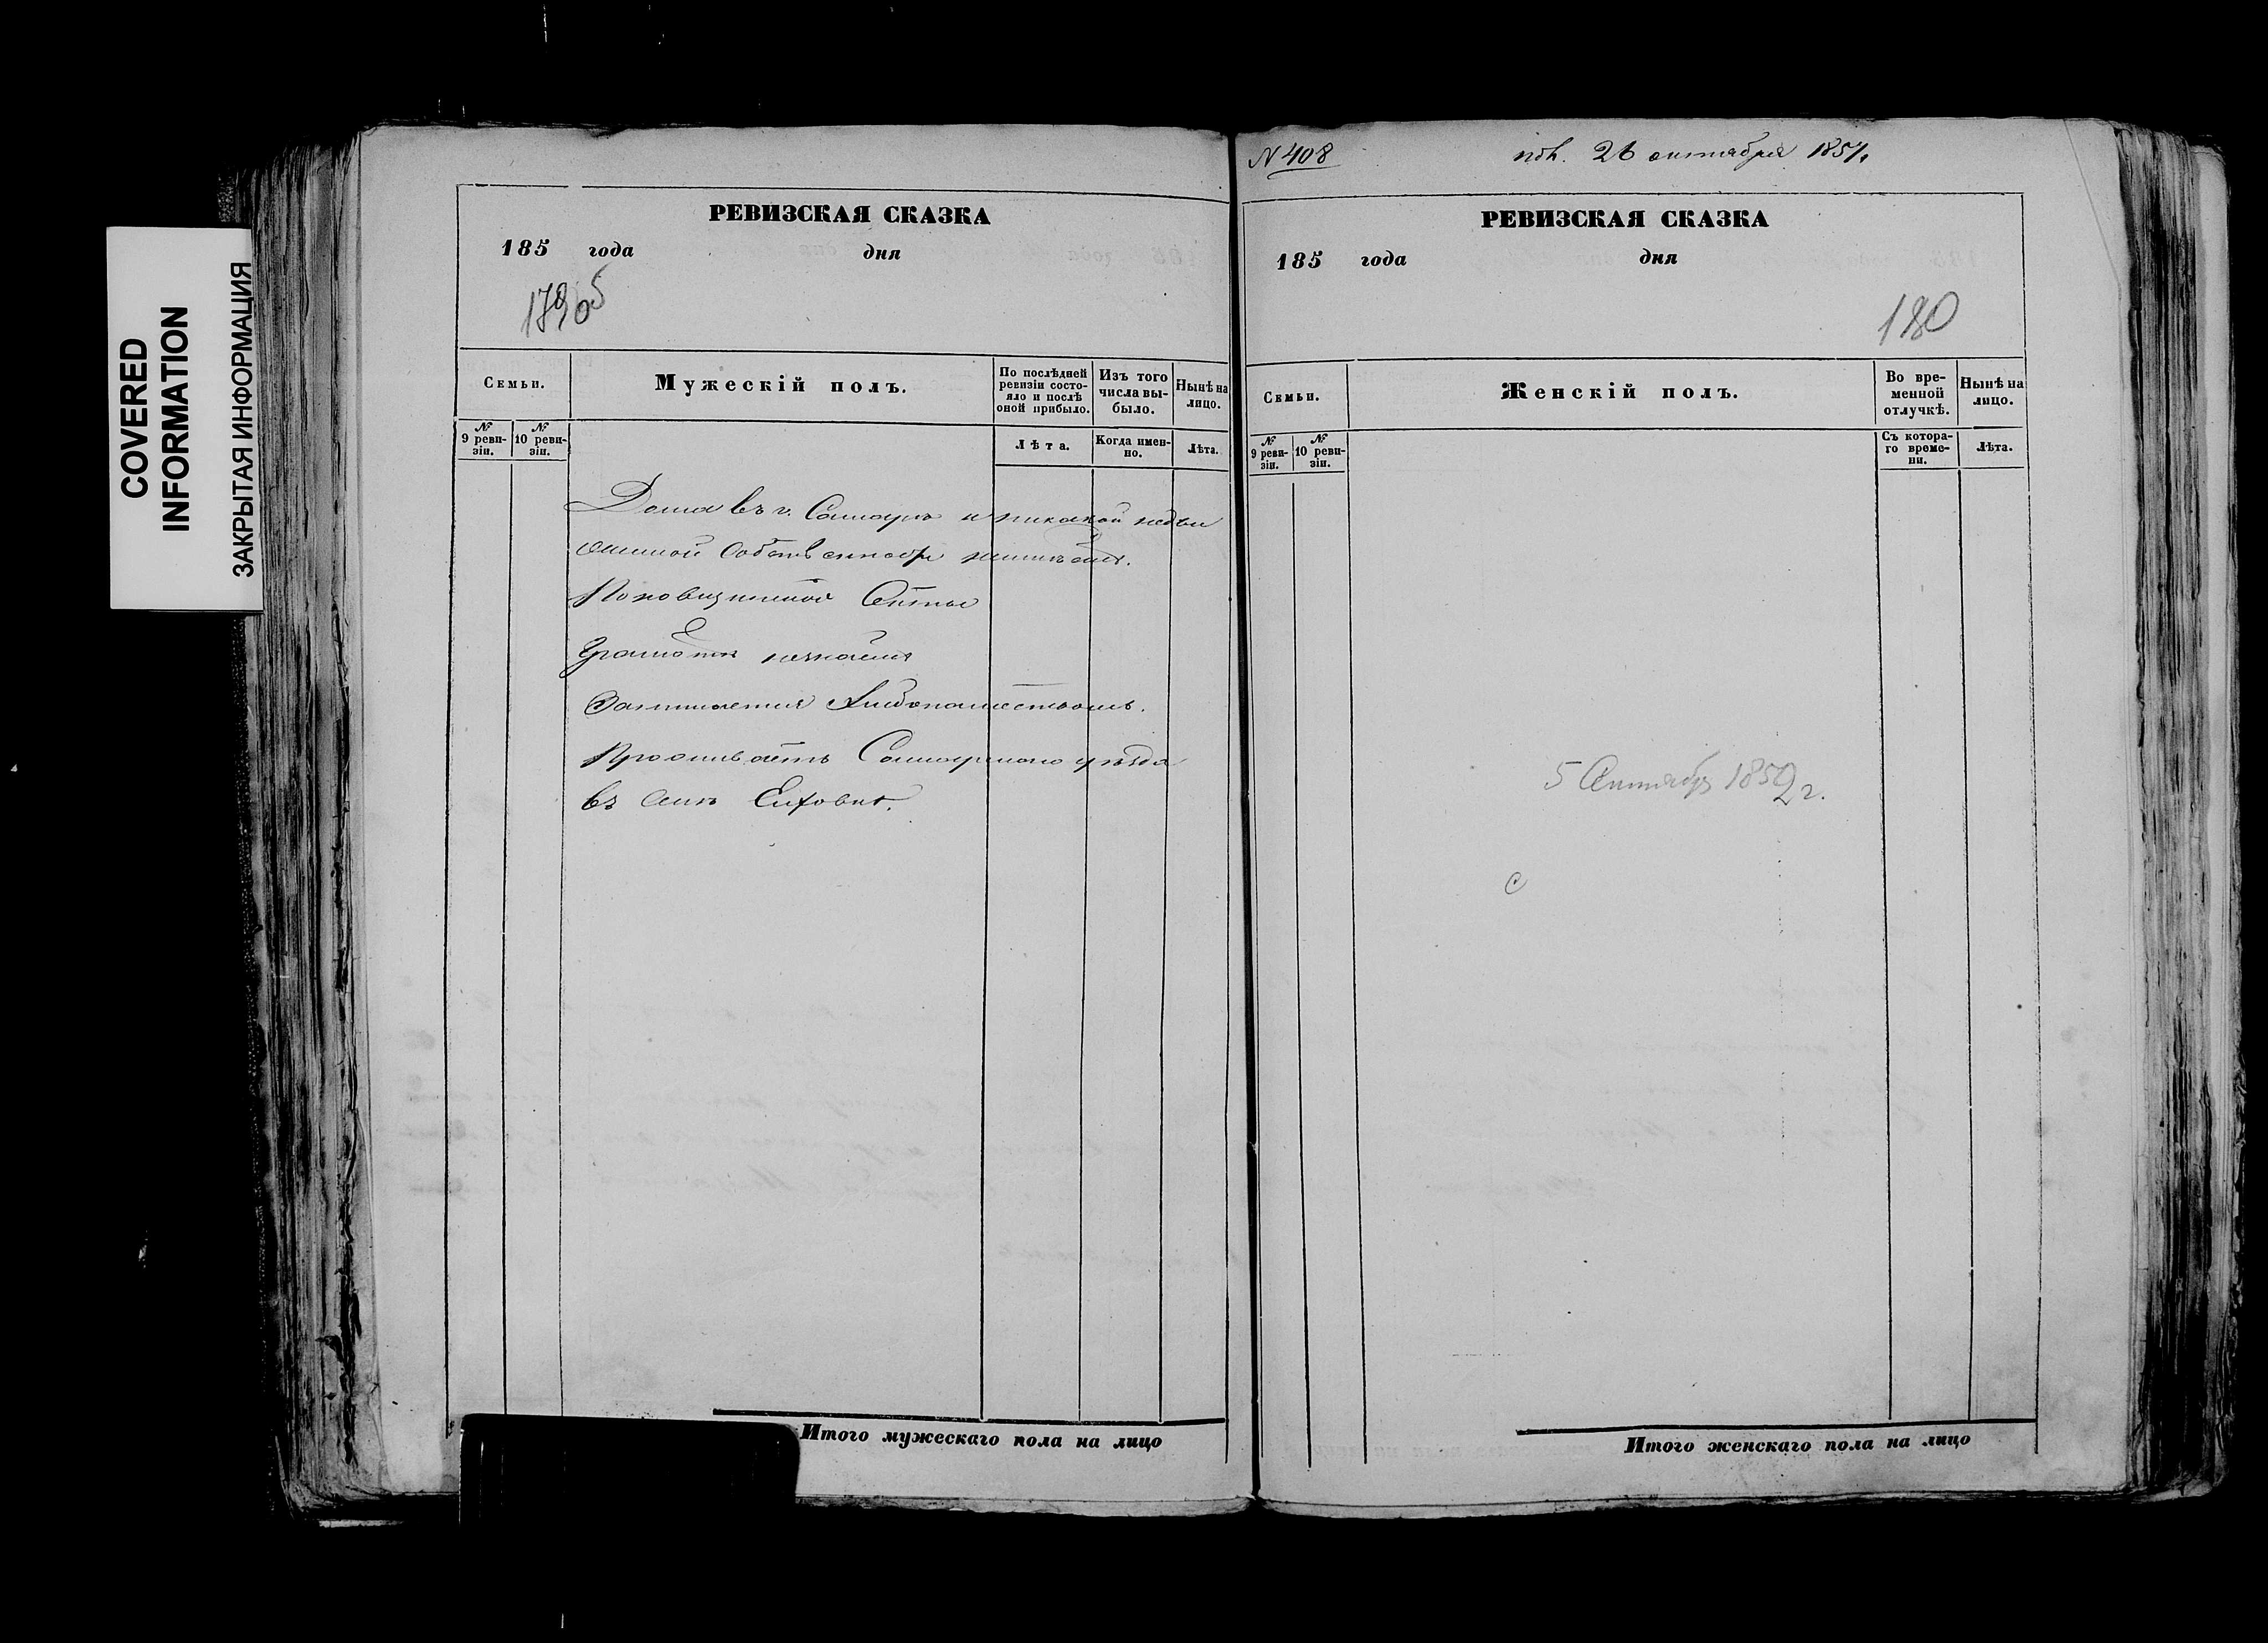 COVERED
INFORMATION
ЗАКРЫТАЯ ИНФОРМАЦИЯ
РЕВИЗСКАЯ СКАЗКА
185 года дня
179 об
Семьи.
Мужескій полъ.
По послѣдней ревизіи состояло и послѣ оной прибыло.
Изъ того числа выбыло.
Нынѣ на лицо.
№ 9 ревизіи.
№ 10 ревизіи.
Лѣта.
Когда именно.
Лѣта.
Дома въ г. Самарѣ и никакой недви
жимой собственности неимѣетъ.
Грамотѣ незнаетъ
Занимается Хлѣбопашествомъ.
Проживаетъ Самарскаго уѣзда
въ Селѣ Елховкѣ.
Итого мужескаго пола на лицо
N 408
26 октября 1857.
РЕВИЗСКАЯ СКАЗКА
185 года дня
180
Семьи.
Женскій полъ.
Во временной отлучкѣ.
Нынѣ на лицо.
№ 9 ревизіи.
№ 10 ревизіи.
Съ котораго времени.
Лѣта.
5 Сентябр 1852 г.
с
Итого женскаго пола на лицо